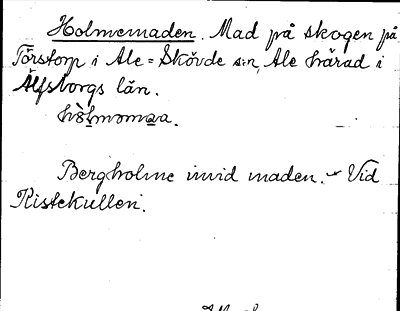 Holmemaden. Mad på skogen på
Törstorp i Ale=Skövde s:n, Ale härad i
Älfsborgs län.
hòlmomaa.
Bergholme invid maden. - Vid
Ristekullen.